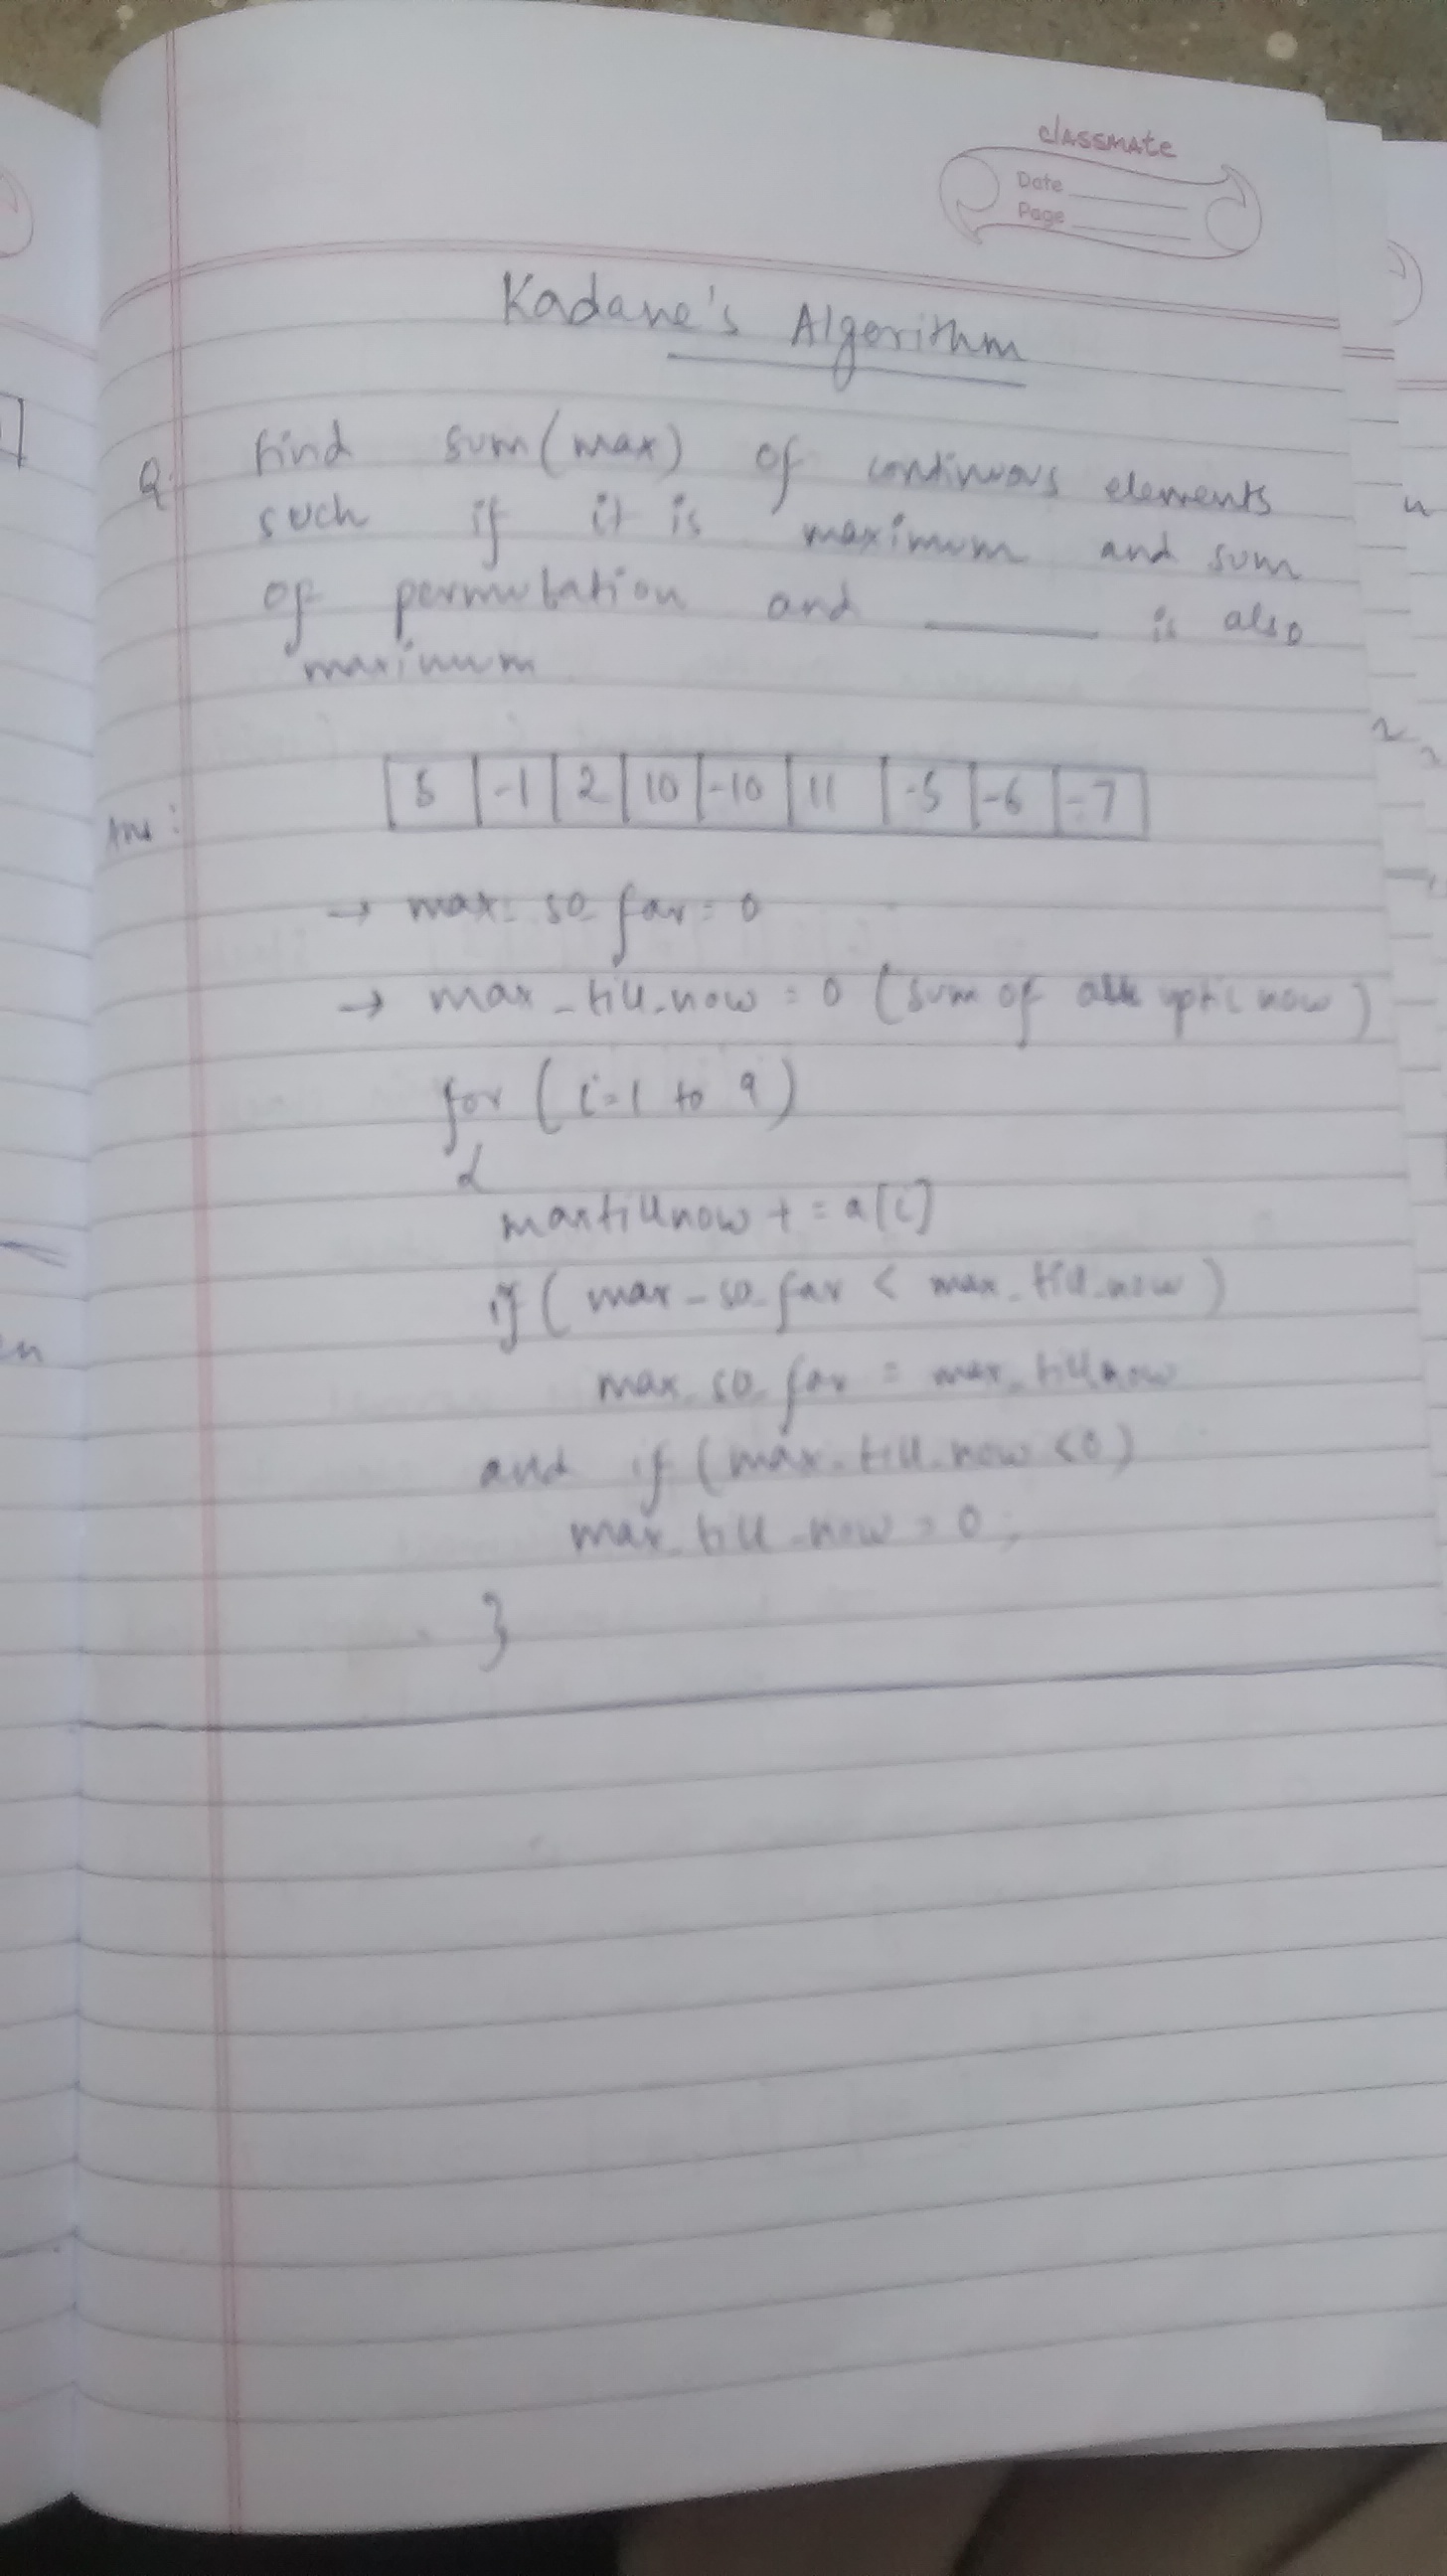 classmate
Date
Page
Kadane's Algorithm
Q. find sum(max) of continuous elements
such if it is maximum and sum
of permutation and ______ is also
maximum
5 -1 2 10 -10 11 -5 -6 -7
Ans:
→ max_so_far = 0
→ max_till_now = 0 (sum of upti now)
for (i=1 to 9)
{
maxtillnow += a[i]
if (max_so_far < max_till_now)
max_so_far = max_till_now
and if (max_till_now <0)
max_till_now = 0;
}